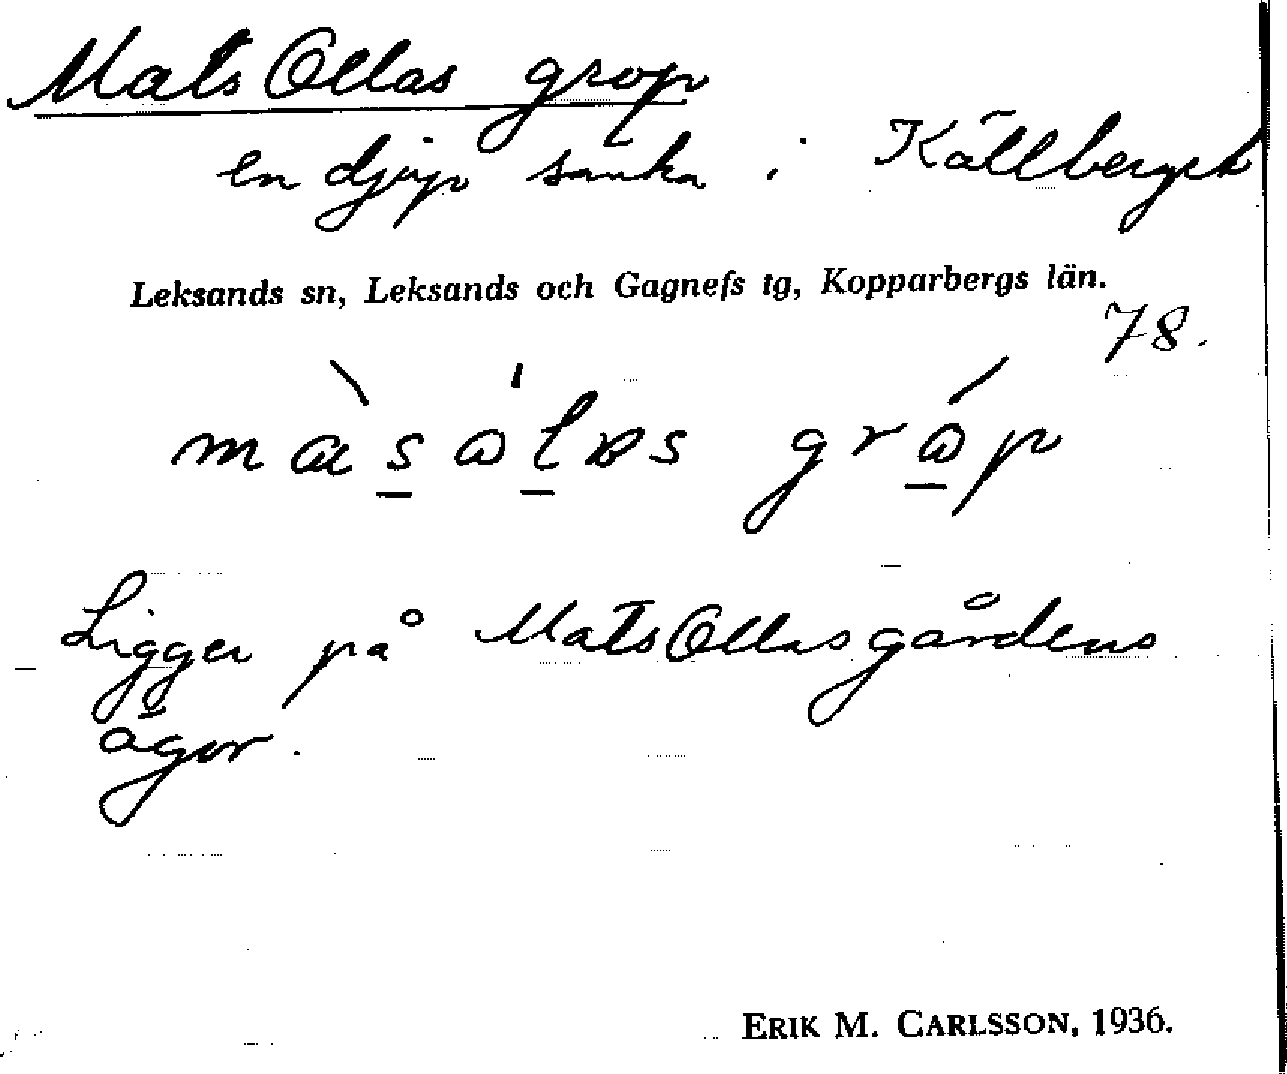 Mats Ollas grop
en djup sänka i Källberget
Leksands sn, Leksands och Gagnefs tg, Kopparbergs län.
78.
Ligger på Mats Ollasgårdens
ägor.
ERIK M. CARLSSON, 1936.